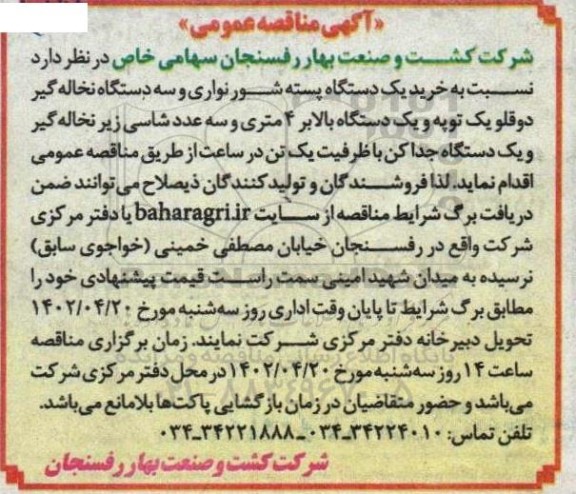 «آگهی مناقصه عمومی»
شرکت کشت و صنعت بهار رفسنجان سهامی خاص در نظر دارد
نسبت به خرید یک دستگاه پسته شور نواری و سه دستگاه نخاله گیر
دوقلو یک توپه و یک دستگاه بالابر ۴ متری و سه عدد شاسی زیر نخاله گیر
و یک دستگاه جداکن با ظرفیت یک تن در ساعت از طریق مناقصه عمومی
اقدام نماید. لذا فروشندگان و تولیدکنندگان ذیصلاح می توانند ضمن
دریافت برگ شرایط مناقصه از سایت baharagri.ir یا دفتر مرکزی
شرکت واقع در رفسنجان خیابان مصطفی خمینی (خواجوی سابق)
نرسیده به میدان شهید امینی سمت راست قیمت پیشنهادی خود را
مطابق برگ شرایط تا پایان وقت اداری روز سه شنبه مورخ ۱۴۰۲/۰۴/۲۰
تحویل دبیرخانه دفتر مرکزی شرکت نمایند. زمان برگزاری مناقصه
ساعت ۱۴ روز سه شنبه مورخ ۱۴۰۲/۰۴/۲۰ در محل دفتر مرکزی شرکت
می باشد و حضور متقاضیان در زمان بازگشایی پاکت ها بلامانع می باشد.
تلفن تماس: ۳۴۲۲۴۰۱۰-۰۳۴ـ۳۴۲۲۱۸۸۸-۰۳۴
شرکت کشت و صنعت بهار رفسنجان